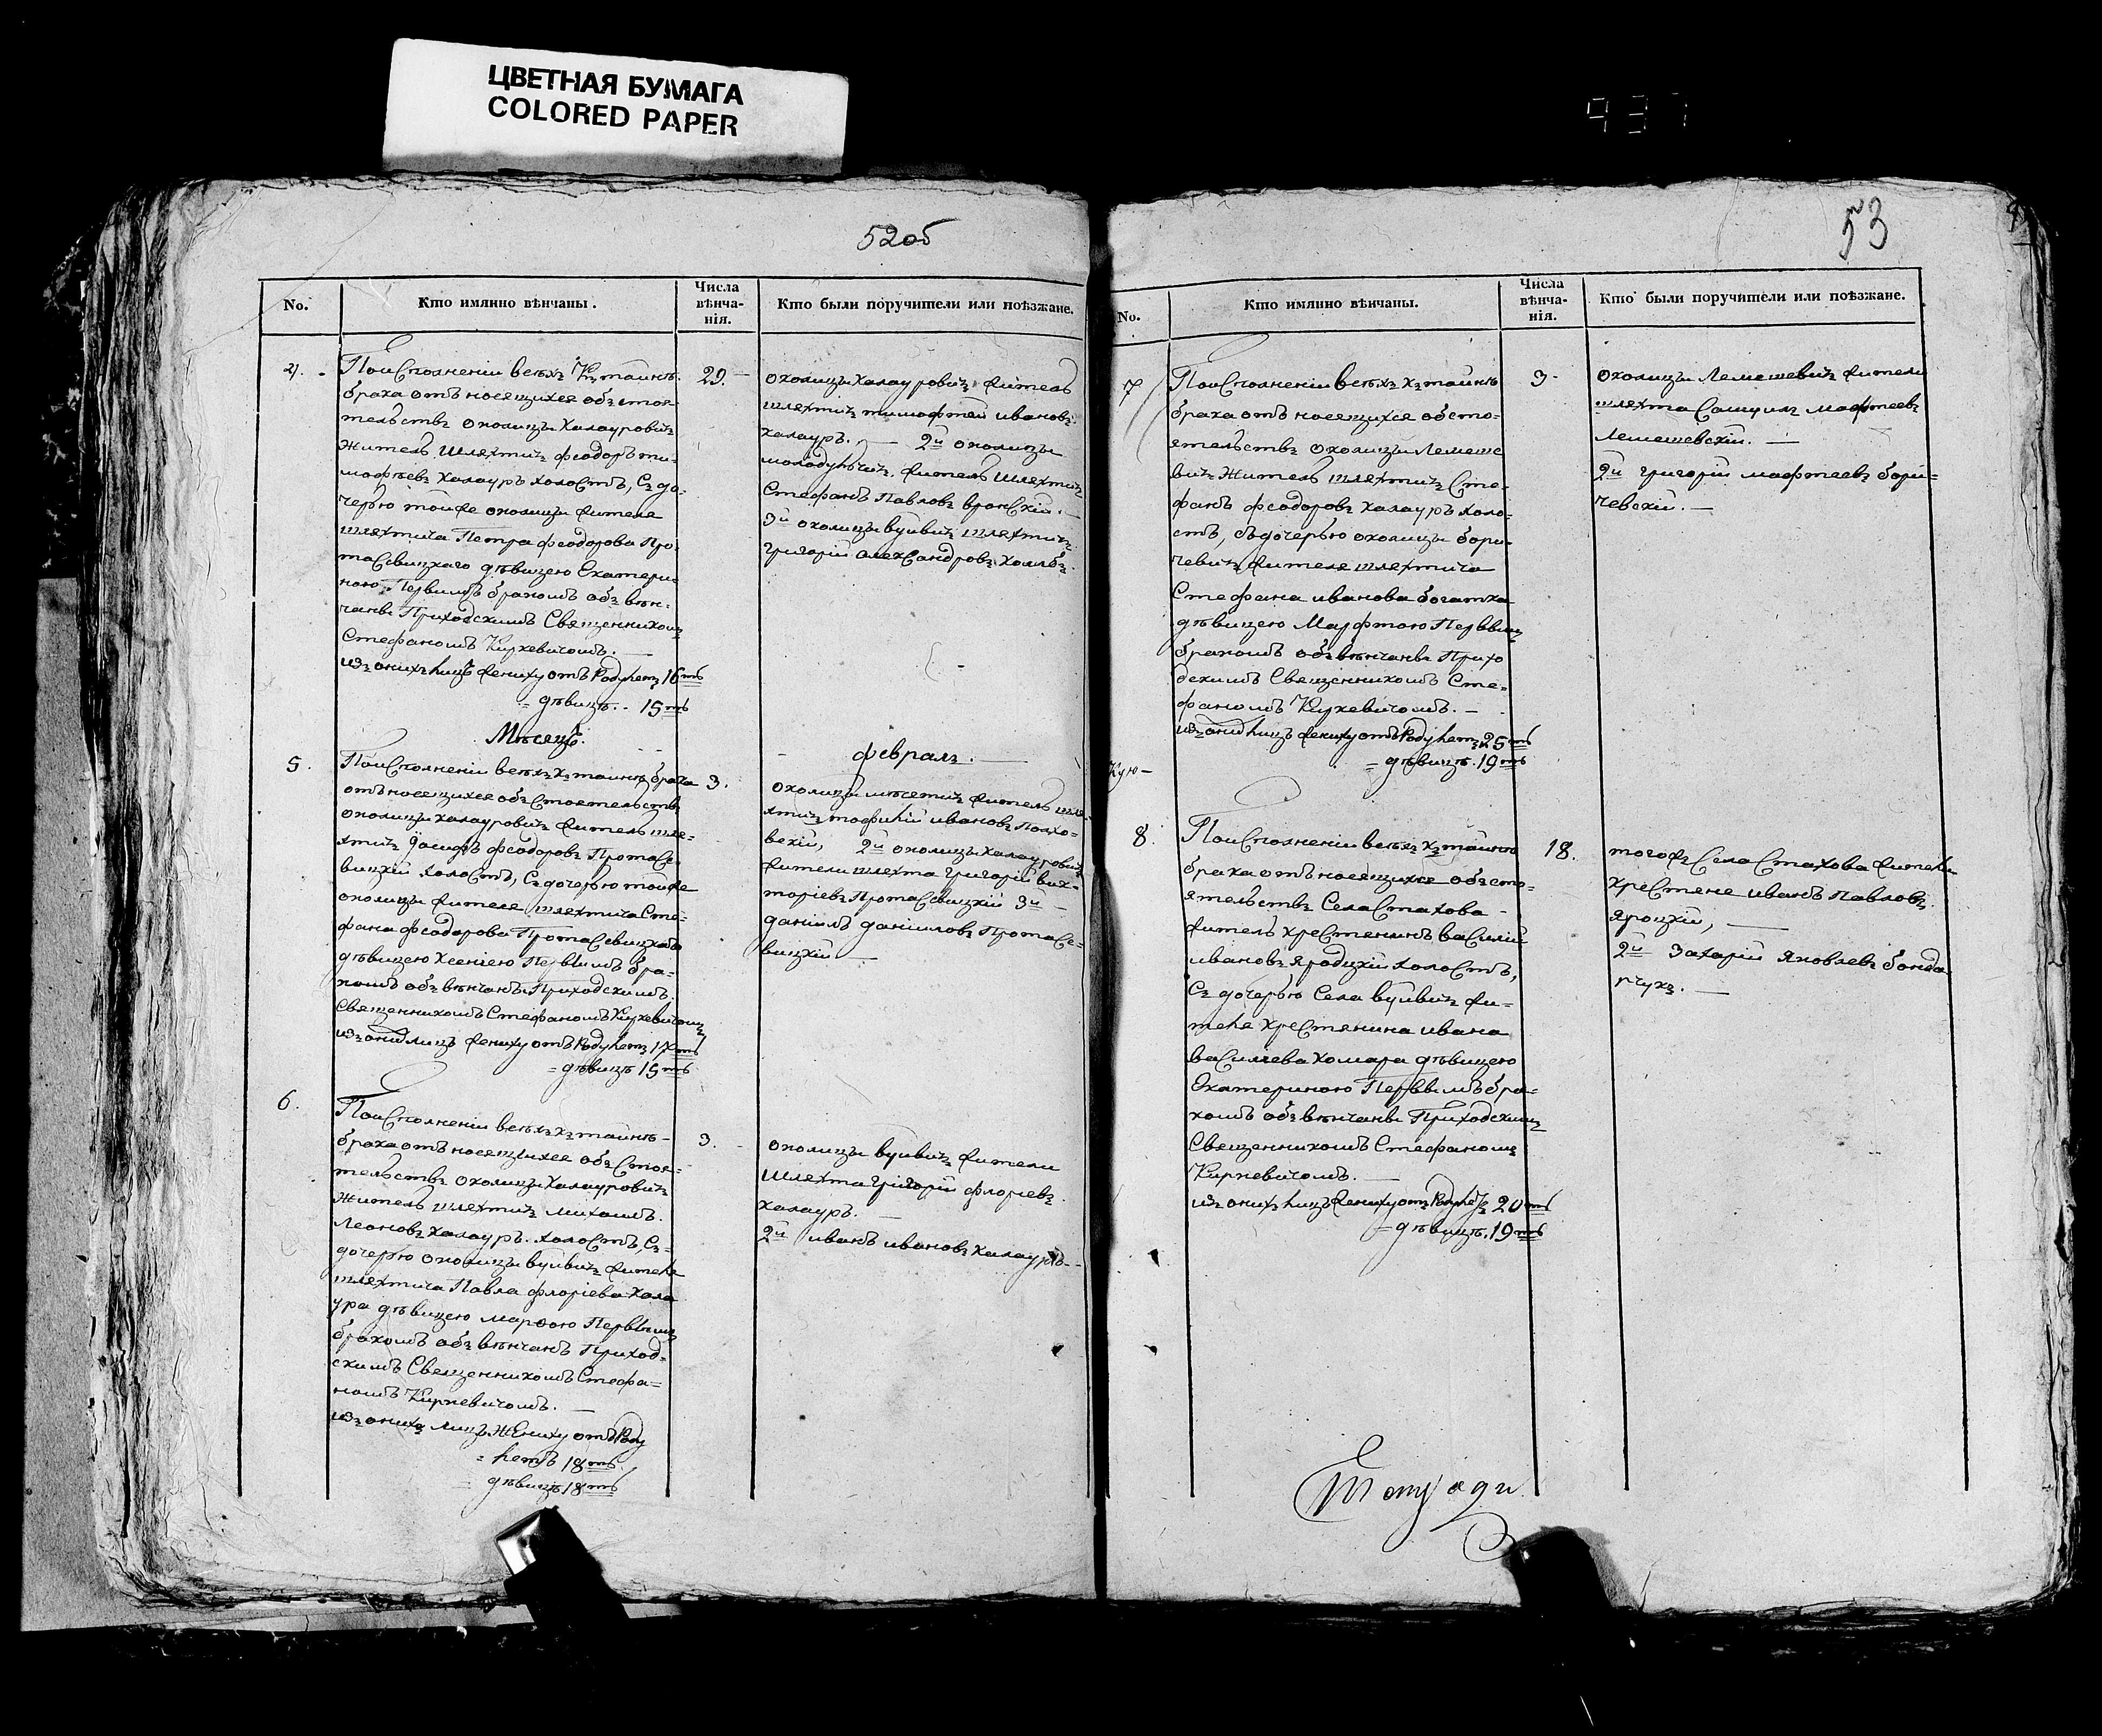 ЦВЕТНАЯ БУМАГА
COLORED PAPER
937
52об
No.
Кто имянно вѣнчаны.
Числа вѣнча-нія.
Кто были поручители или поѣзжане.
4.
По исполненіи всѣхъ къ таинств.
брака отъ носящихся объ стоя-
тельствъ околицы Халауровичъ
житель шляхтичъ феодоръ ти-
мофѣевъ Халауръ холостъ, съ до-
черью тойже околицы жителя
шляхтича Петра феодорова Про-
тасевицкаго дѣвицею Екатери-
ною Первимъ бракомъ объ вѣн-
чанъ Приходскимъ Священникомъ
Стефаномъ Киркевичомъ. —
изъ онихъ лицъ жениху отъ Роду летъ 16ть
= дѣвицѣ. - 15ть
29. —
околицы Халауровичъ житель
шляхтичъ тимофтей ивановъ
халауръ. — 2й околицы
молодульчичъ житель шляхтичъ
Стефанъ Павловъ вронскій. —
3й околицы вуйвичъ шляхтичъ
григорій александровъ
Мѣсяцъ.
февраль. —
5.
По исполненіи всѣхъ къ таинств брака
отъ носящихся объ Стоятельствъ
околицы халауровичъ житель шля-
хтичъ Іосифъ феодоровъ Протасе-
вицкій холостъ, Съ дочерью тойже
околицы жителя шляхтича Сте-
фана феодорова Протасевицкаго
дѣвицею Ксеніею Первимъ бра-
комъ объ вѣнчанъ Приходскимъ
Священникомъ Стефаномъ Киркевичомъ
изъ онихъ лицъ жениху отъ Роду летъ 17ть
= дѣвицѣ 15ть
3.
околицы мѣсетичъ житель шля-
хтичъ ивановъ Полхо-
вскій, 2й околицы халауровичъ
жители шляхта григорій вик-
торіевъ Протасевицкій 3й —
даніилъ даніиловъ Протасе-
вицкій —
6.
По исполненіи всѣхъ къ таинств -
брака отъ носящихся объ Стоя-
тельствъ околицы халауровичъ
житель шляхтичъ михаилъ
Леоновъ халауръ холостъ, Съ-
дочерью околицы вуйвичъ жителя
шляхтича Павла флоріева хала
ура дѣвицею марѳою Первымъ
бракомъ объ вѣнчанъ Приход-
скимъ Священникомъ Стефа-
номъ Киркевичомъ. —
изъ онихъ лицъ жениху отъ Роду
= летъ 18ть
= дѣвицѣ 18ть
3.
околицы вуйвичъ жители
шляхта григорій флоріевъ
халауръ. —
2й иванъ ивановъ халауръ -
53
No.
Кто имянно вѣнчаны.
Числа вѣнча-нія.
Кто были поручители или поѣзжане.
7
По исполненіи всѣхъ къ таинств
брака отъ носящихся объ сто-
ятельствъ околицы Лемеше
вичъ житель шляхтичъ Сте-
фанъ феодоровъ халауръ холо-
стъ, съ дочерью околицы бори-
чевичъ жителя шляхтича
Стефана иванова богатка
дѣвицею Марфтою Первымъ
бракомъ объ вѣнчанъ Прихо
дскимъ Священникомъ Сте-
фаномъ Киркевичомъ. —
изъ онихъ лицъ жениху отъ Роду летъ 25ть
= дѣвицѣ. 19ть
3 -
околицы Лемешевичъ жители
шляхта Самуилъ мафтеевъ
Лемешевскій. —
2й григорій мафтеевъ бори-
чевскій. —
8.
По исполненіи всѣхъ къ таинств
брака отъ носящихся объ сто-
ятельствъ Села Стахова -
житель крестенинъ василій
ивановъ яроцкій холостъ,
Съ дочерью Села вуйвичъ жи-
теля крестянина ивана
василіева комара дѣвицею
Екатериною Первымъ бра-
комъ объ вѣнчанъ Приходскимъ
Священникомъ Стефаномъ
Киркевичомъ. —
изъ онихъ лицъ жениху отъ Роду летъ 20ть
= дѣвицѣ. 19ть
18.
тогожъ Села Стахова жители
крестяне иванъ Павловъ
яроцкій, —
2й Захарій Яковлевъ бонда
рчукъ. —